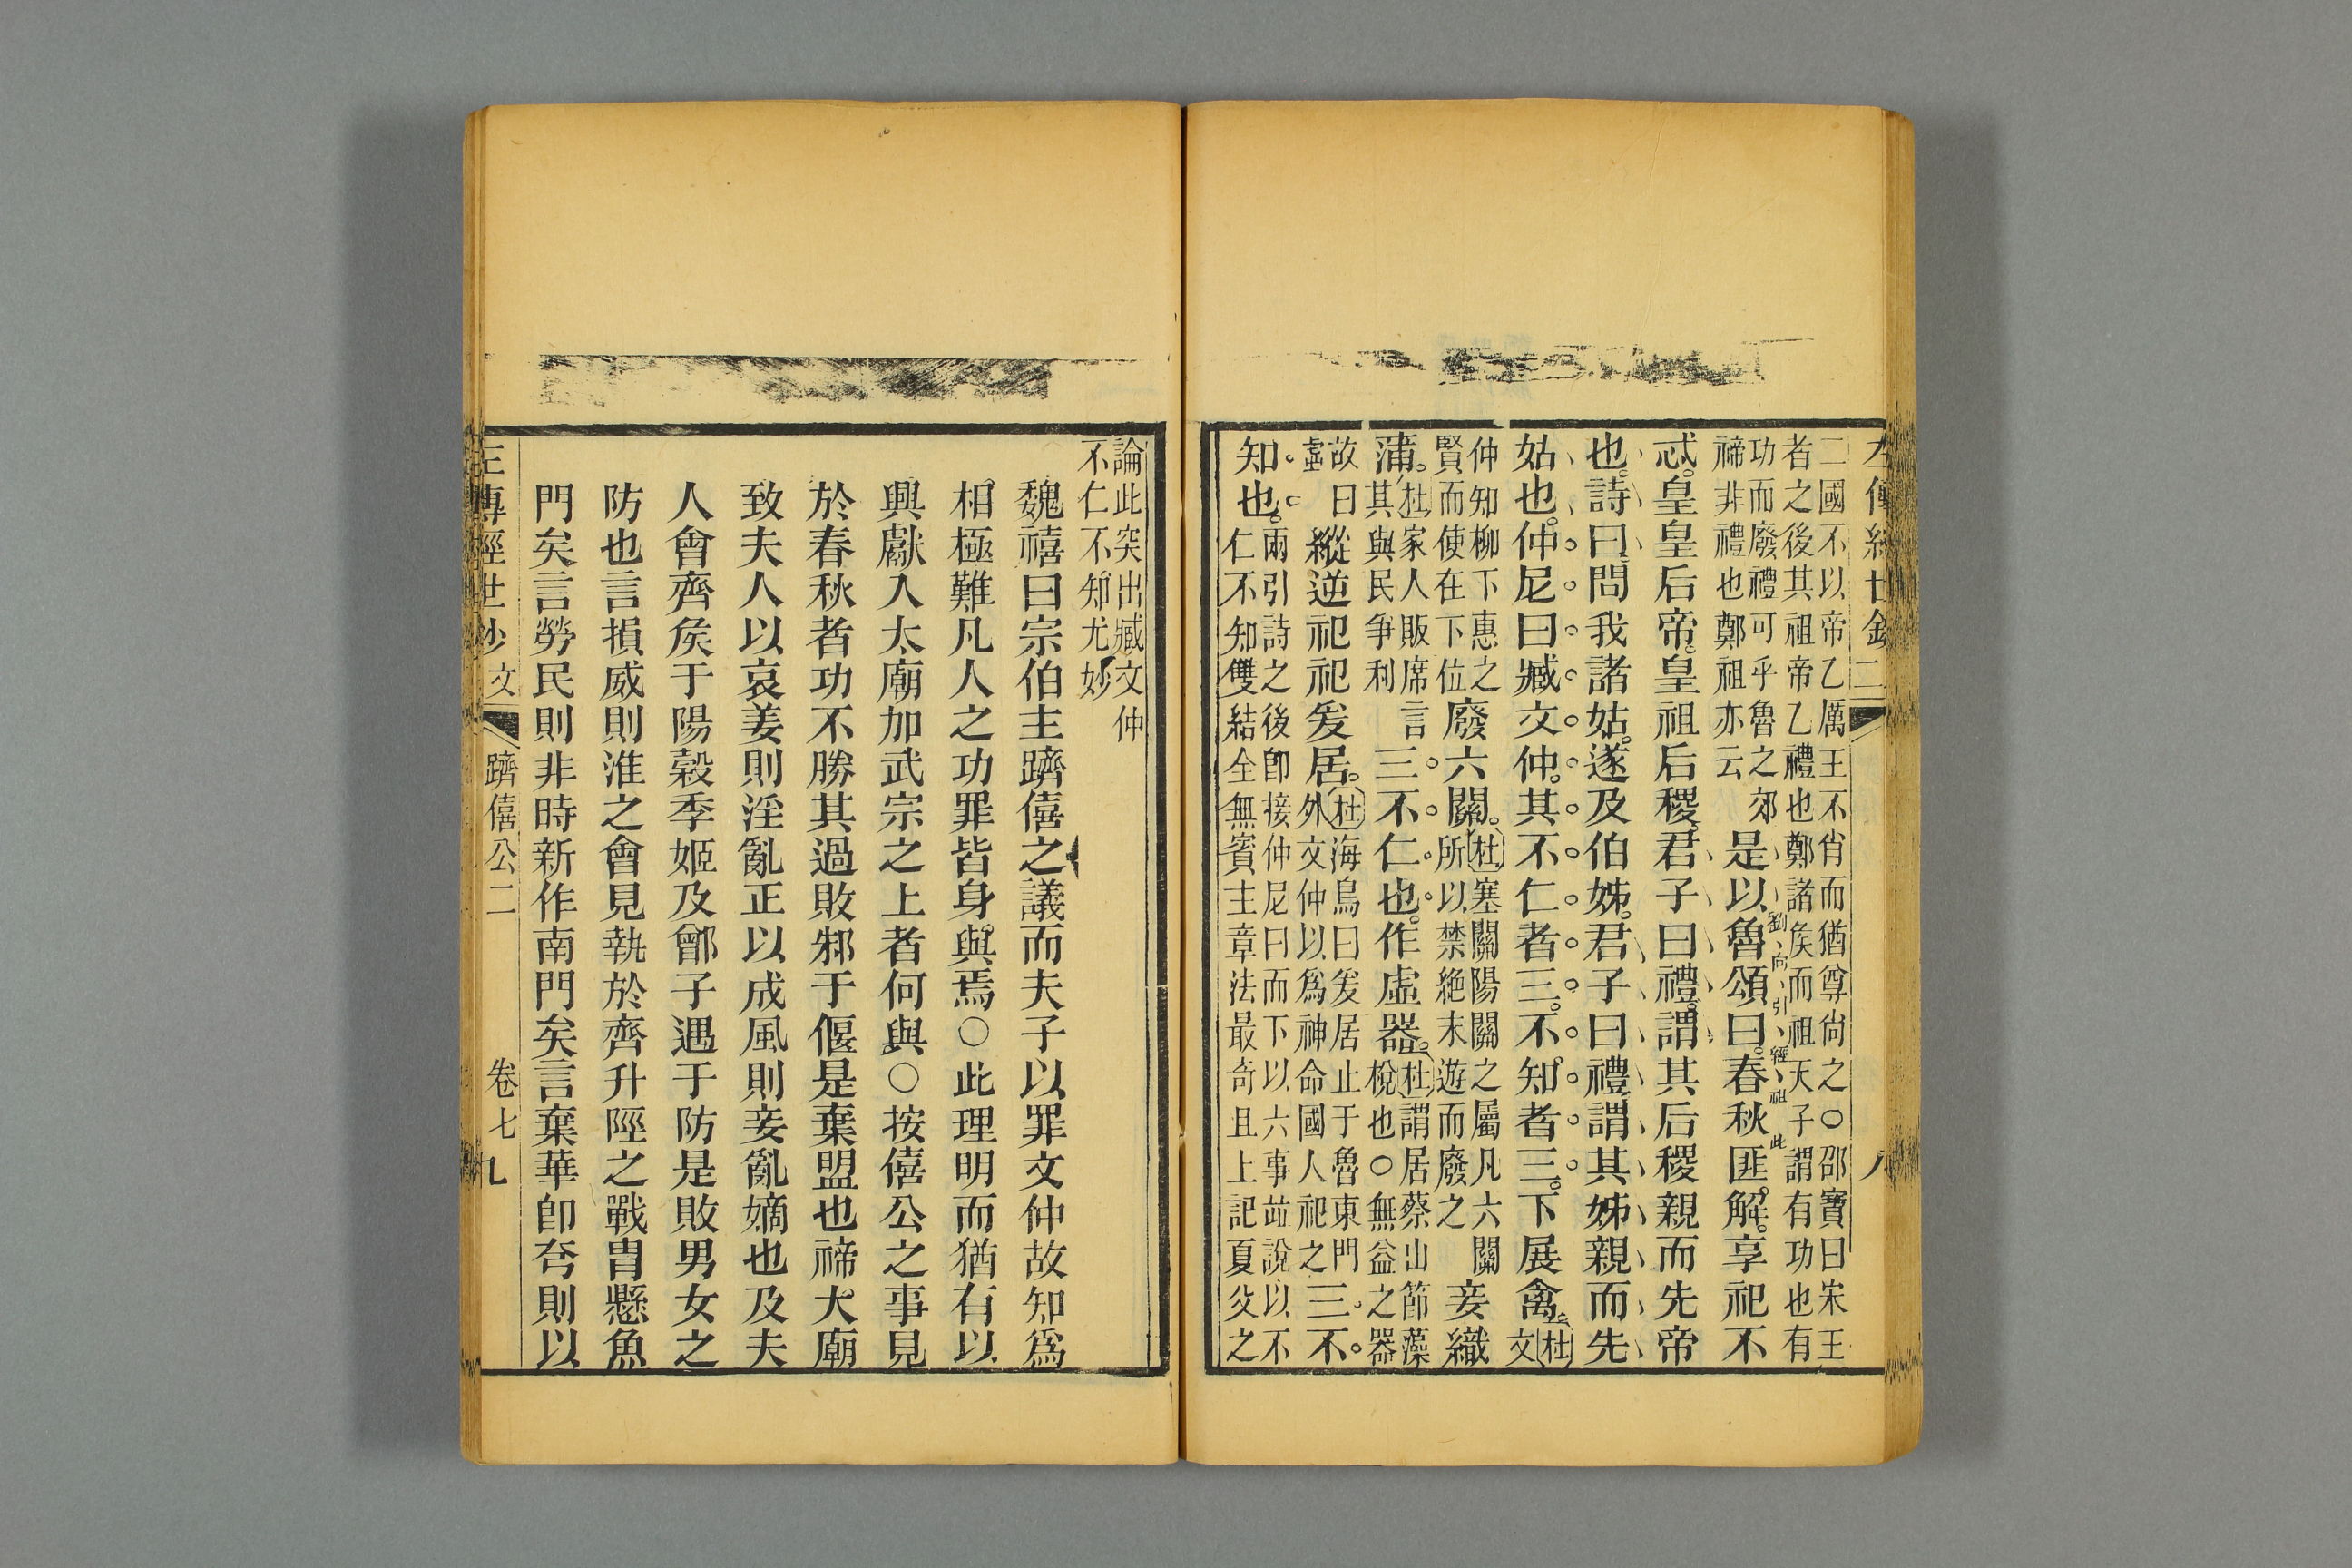 左傳經世鈔 二 八
二國不以帝乙厲王不肖而猶尊尙之○邵寶曰宋王
者之後其祖帝乙禮也鄭諸矦而祖天子謂有功也有
功而廢禮可乎魯之郊
禘非禮也鄭祖亦云
是以魯頌曰春秋匪解享祀不
劉向引經祖此
忒皇皇后帝皇祖后稷君子曰禮謂其后稷親而先帝
也詩曰問我諸姑遂及伯姊君子曰禮謂其姊親而先
姑也仲尼曰臧文仲其不仁者三不知者三下展禽杜文
仲知柳下惠之
賢而使在下位
廢六關
杜塞關陽關之屬凡六關
所以禁絕末遊而廢之
妾織
蒲
杜家人販席言
其與民爭利
三不仁也作虛器
杜謂居蔡山節藻
梲也○無益之器
故曰
虛
縱逆祀祀爰居
杜海鳥曰爰居止于魯東門
外文仲以爲神命國人祀之
三不
知也
兩引詩之後卽接仲尼曰而下以六事竝說以不
仁不知雙結全無賓主章法最奇且上記夏父之
論此突出臧文仲
不仁不知尤妙
魏禧曰宗伯主躋僖之議而夫子以罪文仲故知爲
相極難凡人之功罪皆身與焉○此理明而猶有以
興獻入太廟加武宗之上者何與○按僖公之事見
於春秋者功不勝其過敗邾于偃是棄盟也禘大廟
致夫人以哀姜則淫亂正以成風則妾亂嫡也及夫
人會齊矦于陽穀季姬及鄫子遇于防是敗男女之
防也言損威則淮之會見執於齊升陘之戰冑懸魚
門矣言勞民則非時新作南門矣言棄華卽夸則以
左傳經世鈔 文 躋僖公二 卷七 九